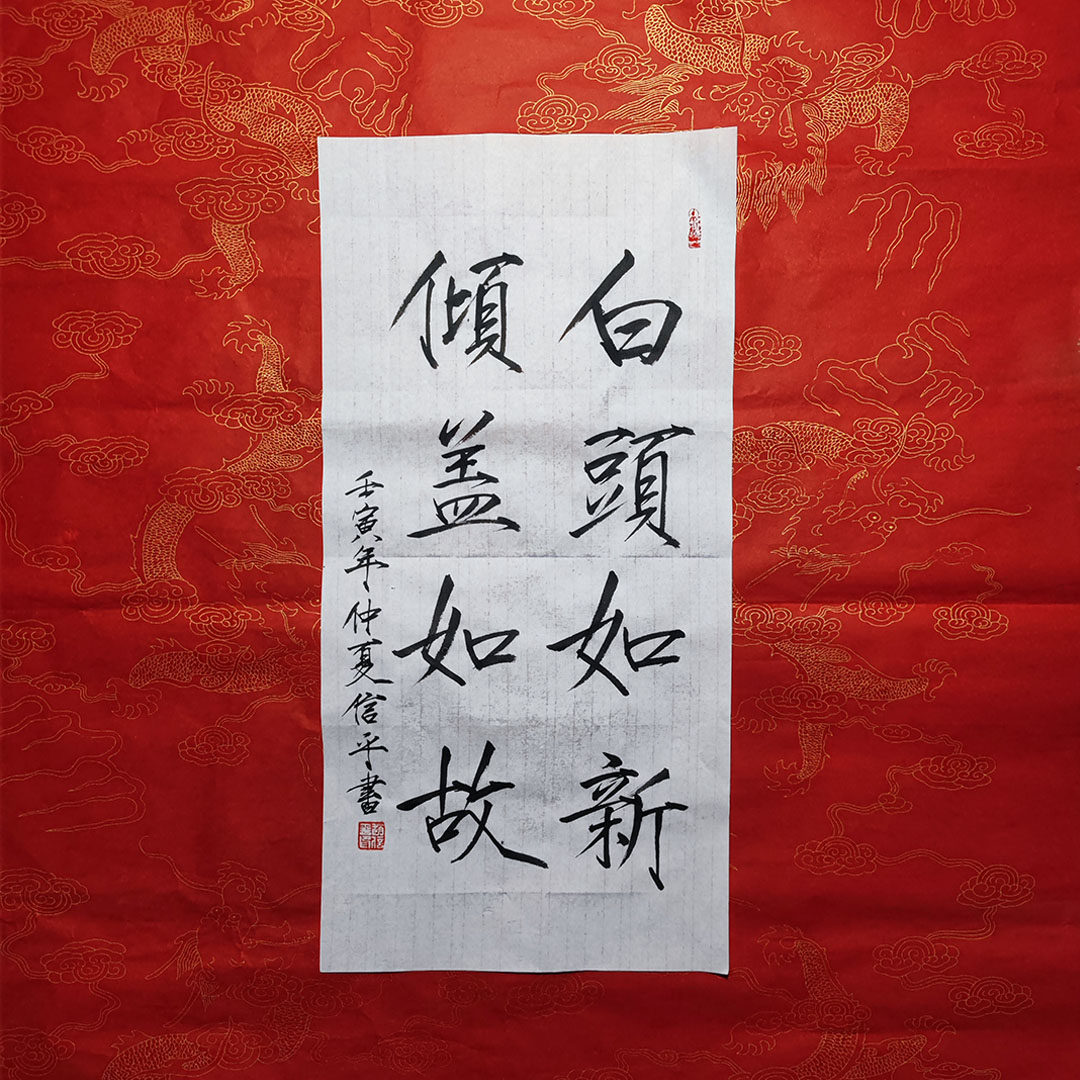 白頭如新
傾盖如故
壬寅年仲夏信平書